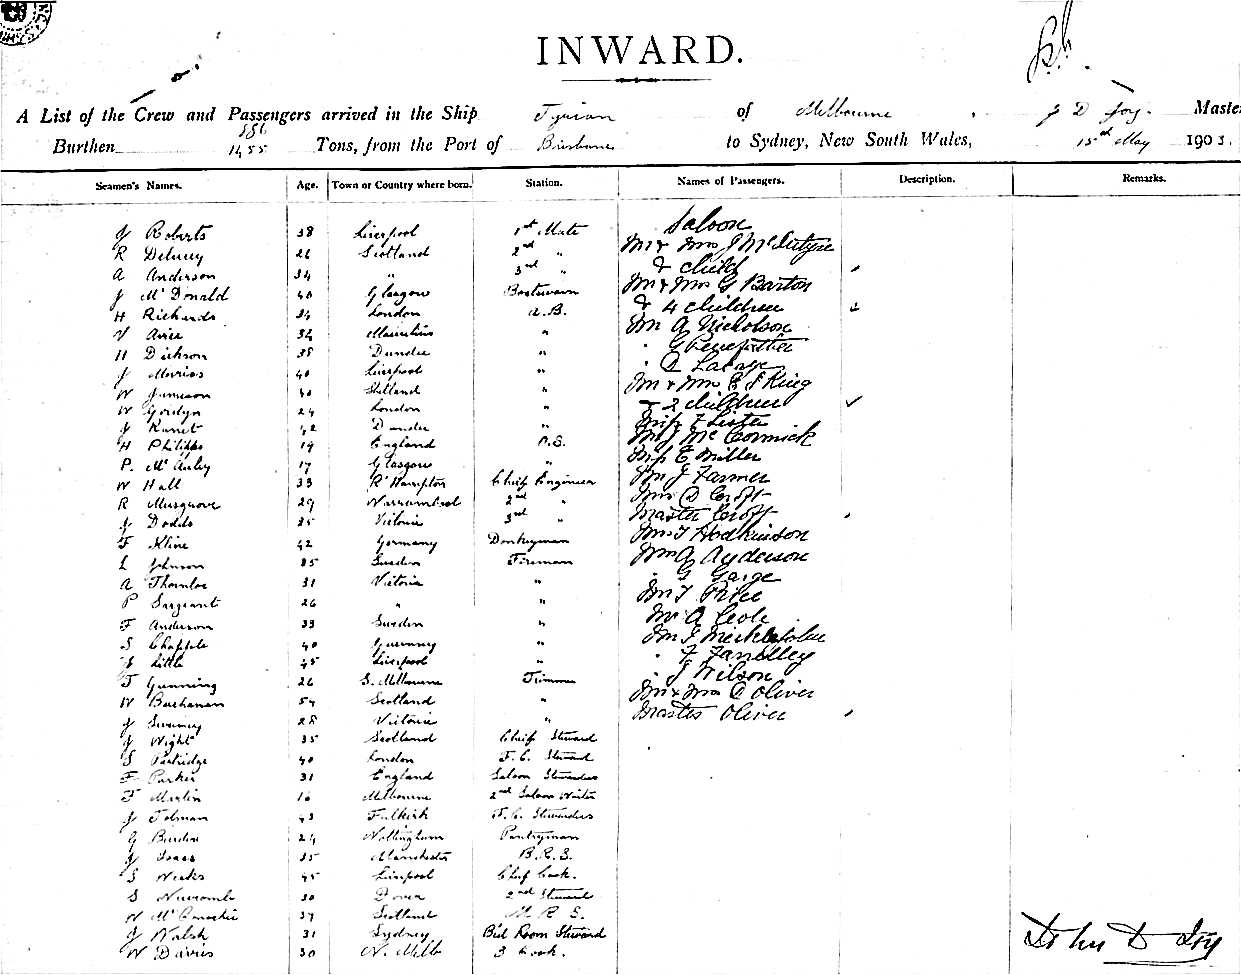 INWARD.
A List of the Crew and Passengers arrived in the Ship Tyrian of Melbourne J D Joy Master
Burthen 886 1455 Tons, from the Port of Brisbane to Sydney, New South Wales, 15th May 1903.
Seamen's Names. Age. Town or Country where born. Station. Names of Passengers. Description. Remarks.
Saloon
J Roberts 38 Liverpool 1st Mate
Mr & Mrs J McIntyre
R 26 Scotland 2nd "
& child
A Anderson 34 " 3rd "
Mr & Mrs G Barton
J McDonald 40 Glasgow Boatswain
& 4 children
H Richards 24 London A.B.
Mr A Nicholson
V 34 Mauritius "
" G
H Dickson 38 Dundee "
" D
J 40 Liverpool "
Mr & Mrs E J King
W Jameson 40 Shetland "
& 2 children
W 24 London "
Miss F Lister
J 42 Dundee "
Mr J McCormick
H Philipps 19 England O.S.
Miss E Miller
P. McAuley 17 Glasgow "
Mr J Farmer
W Hall 33 R'Hampton Chief Engineer
Mrs D Croft
R Musgrove 29 Warrnambool 2nd "
Master Croft
J Dodds 25 Victoria 3rd "
Mrs T Hodkinson
F Kline 42 Germany Donkeyman
Mr A Anderson
L Johnson 35 Sweden Fireman
" G
A 31 Victoria "
Mr T Price
P Sargeant 26 " "
Mr A Cook
F Anderson 33 Sweden "
Mr J
S Chapple 40 Guernsey "
" F
S Little 45 Liverpool "
" J Wilson
T Gunning 26 S. Melbourne Trimmer
Mr & Mrs D Oliver
W Buchanan 54 Scotland "
Master Oliver
J Sweeney 28 Victoria "
J Wight 35 Scotland Chief Steward
S Partridge 40 London F.C. Steward
F Parker 31 England Saloon Stewards
F Martin 16 Melbourne 2nd Saloon Waiter
J Tolman 43 Falkirk F.C. Stewardess
G 24 Nottingham Pantryman
J Isaac 35 Manchester B.R.S.
S Weeks 45 Liverpool Chief Cook.
S Newcombe 30 Dover 2nd Steward
W 37 Scotland M R S.
J Walsh 31 Sydney Bed Room Steward
W Davies 30 N. Melb 3 Cook.
John D Joy